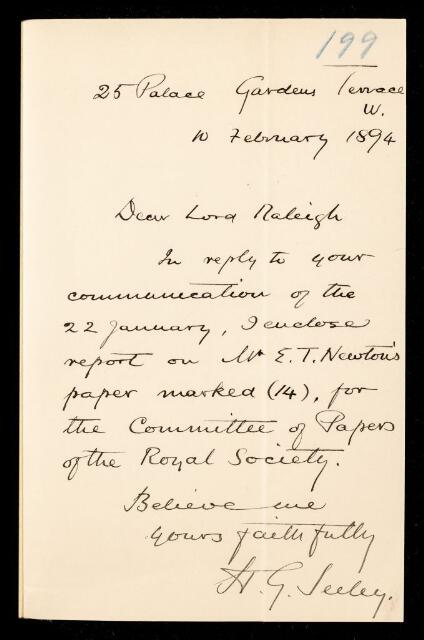 199
25 Palace Gardens Terrace
W.
10 February 1894
Dear Lord Raleigh
In reply to your
communication of the
22 January, I enclose
report on Mr E. T. Newton's
paper marked (14), for
the Committee of Papers
of the Royal Society.
Believe me
yours faithfully
H. G. Seeley.